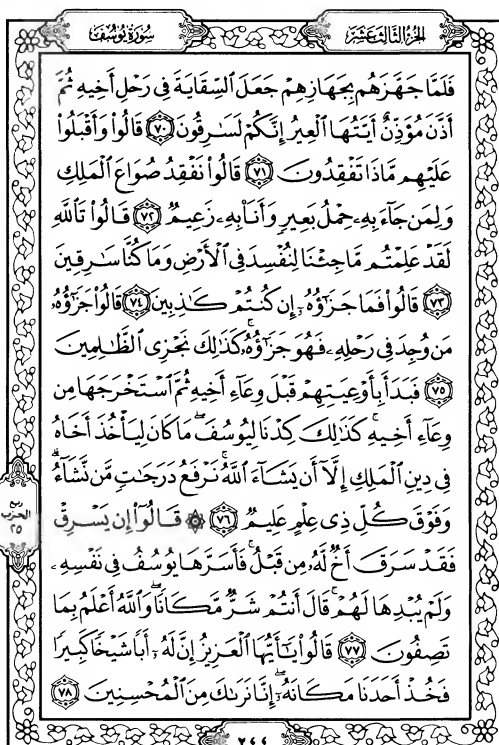 سُورَةُ يُوسُفَ
الجُزْءُ الثَّالِثَ عَشَرَ
فَلَمَّا جَهَّزَهُم بِجَهَازِهِمْ جَعَلَ ٱلسِّقَايَةَ فِى رَحْلِ أَخِيهِ ثُمَّ
أَذَّنَ مُؤَذِّنٌ أَيَّتُهَا ٱلْعِيرُ إِنَّكُمْ لَسَٰرِقُونَ ٧٠ قَالُوا۟ وَأَقْبَلُوا۟
عَلَيْهِم مَّاذَا تَفْقِدُونَ ٧١ قَالُوا۟ نَفْقِدُ صُوَاعَ ٱلْمَلِكِ
وَلِمَن جَآءَ بِهِۦ حِمْلُ بَعِيرٍ وَأَنَا۠ بِهِۦ زَعِيمٌ ٧٢ قَالُوا۟ تَٱللَّهِ
لَقَدْ عَلِمْتُم مَّا جِئْنَا لِنُفْسِدَ فِى ٱلْأَرْضِ وَمَا كُنَّا سَٰرِقِينَ
٧٣ قَالُوا۟ فَمَا جَزَٰٓؤُهُۥٓ إِن كُنتُمْ كَٰذِبِينَ ٧٤ قَالُوا۟ جَزَٰٓؤُهُۥ
مَن وُجِدَ فِى رَحْلِهِۦ فَهُوَ جَزَٰٓؤُهُۥ كَذَٰلِكَ نَجْزِى ٱلظَّٰلِمِينَ
٧٥ فَبَدَأَ بِأَوْعِيَتِهِمْ قَبْلَ وِعَآءِ أَخِيهِ ثُمَّ ٱسْتَخْرَجَهَا مِن
وِعَآءِ أَخِيهِ ۚ كَذَٰلِكَ كِدْنَا لِيُوسُفَ ۖ مَا كَانَ لِيَأْخُذَ أَخَاهُ
فِى دِينِ ٱلْمَلِكِ إِلَّآ أَن يَشَآءَ ٱللَّهُ ۚ نَرْفَعُ دَرَجَٰتٍ مَّن نَّشَآءُ ۗ
وَفَوْقَ كُلِّ ذِى عِلْمٍ عَلِيمٌ ٧٦ ۞ قَالُوٓا۟ إِن يَسْرِقْ
فَقَدْ سَرَقَ أَخٌ لَّهُۥ مِن قَبْلُ ۚ فَأَسَرَّهَا يُوسُفُ فِى نَفْسِهِۦ
وَلَمْ يُبْدِهَا لَهُمْ ۚ قَالَ أَنتُمْ شَرٌّ مَّكَانًا ۖ وَٱللَّهُ أَعْلَمُ بِمَا
تَصِفُونَ ٧٧ قَالُوا۟ يَٰٓأَيُّهَا ٱلْعَزِيزُ إِنَّ لَهُۥٓ أَبًا شَيْخًا كَبِيرًا
فَخُذْ أَحَدَنَا مَكَانَهُۥٓ ۖ إِنَّا نَرَىٰكَ مِنَ ٱلْمُحْسِنِينَ ٧٨
ربع
الحزب
٢٥
٢٤٤